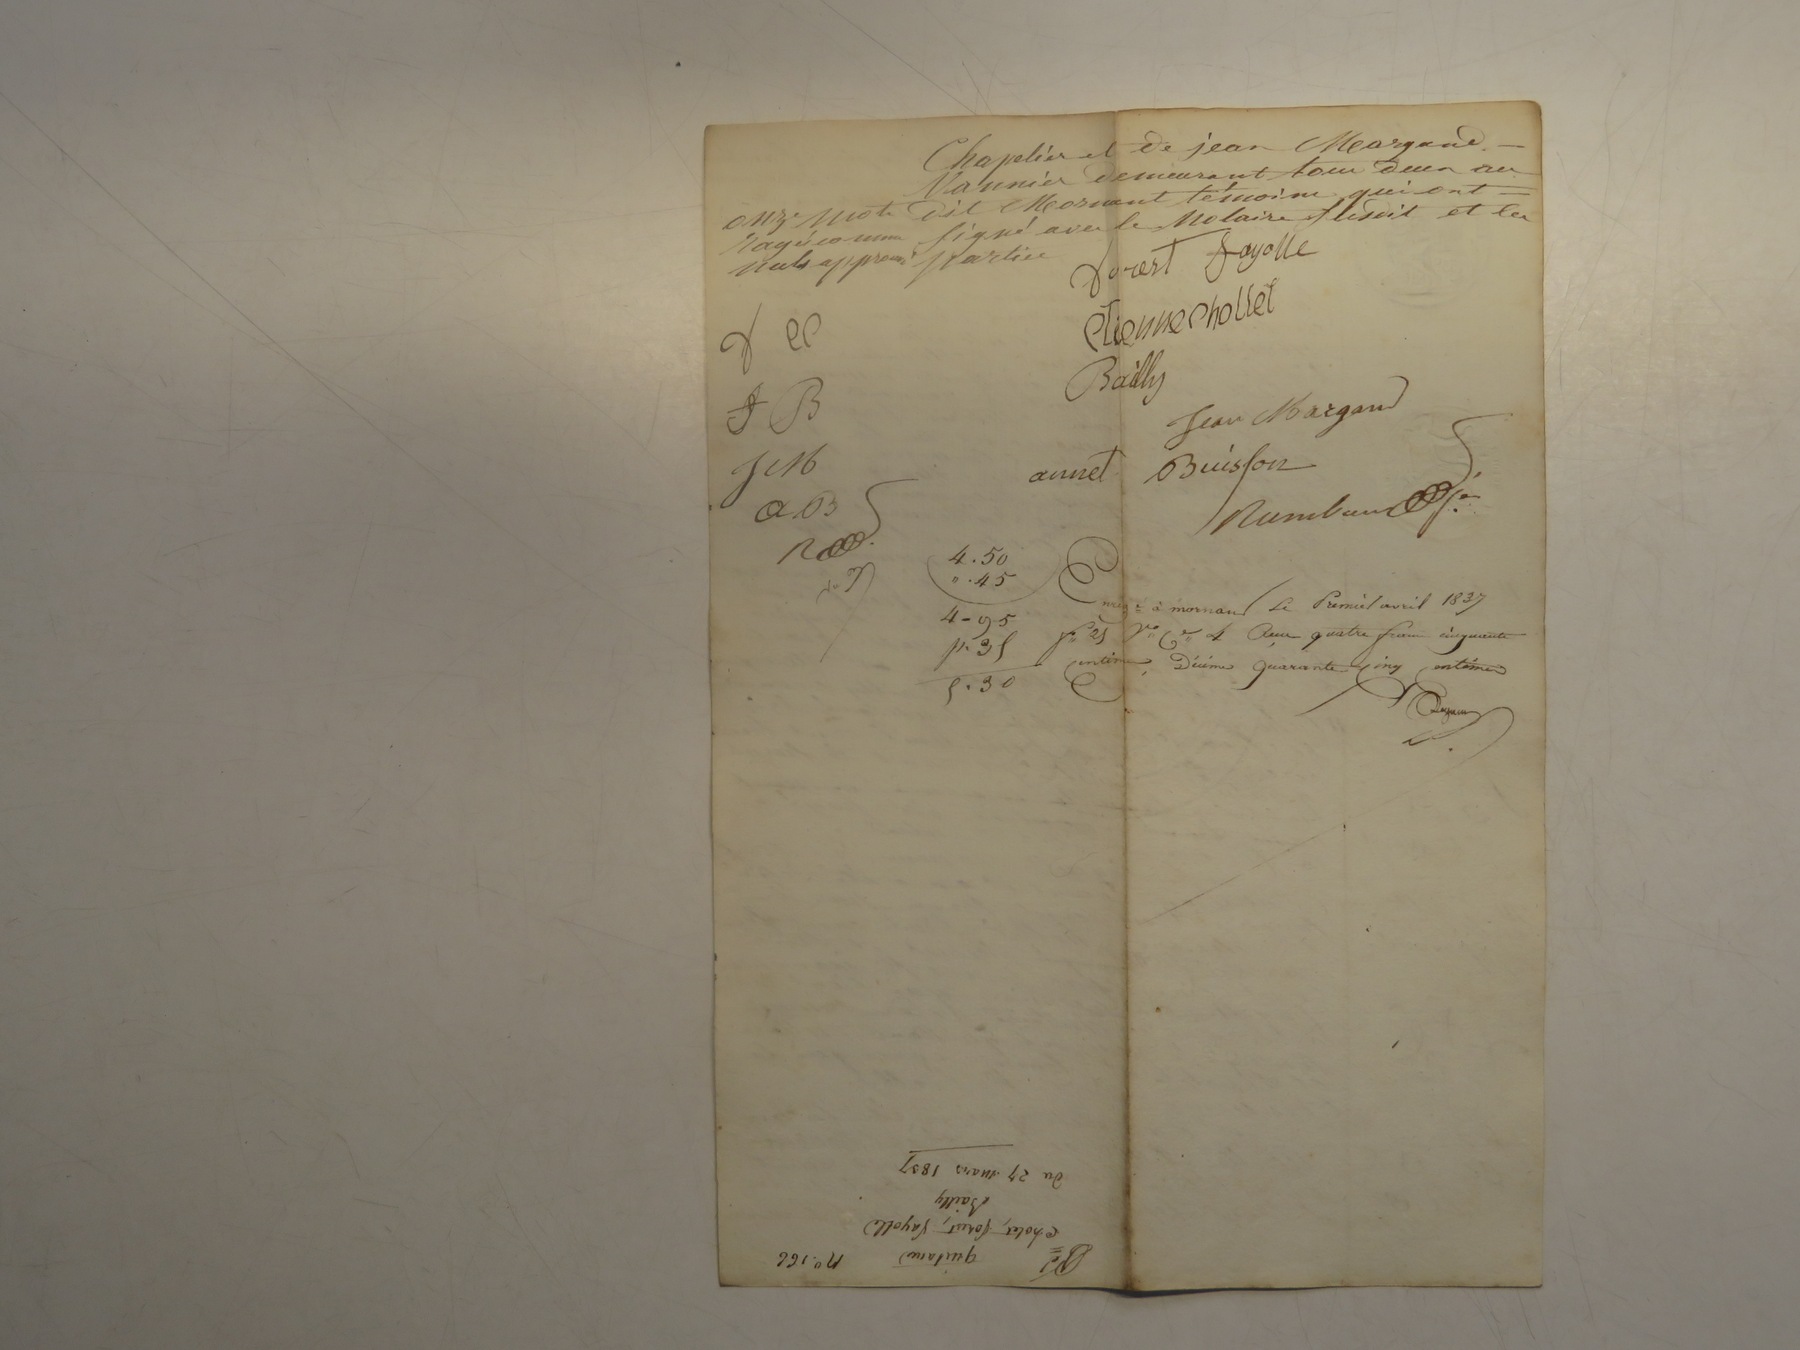 Chapelier et de jean Margand. —
Vannier demeurant tous deux au
dit Mornant témoins qui ont —
signé avec le Notaire susdit et les
parties
onze mots
rayés comme
nuls approuvés
forest fayolle
Etienne chollet
Bailly
Jean Margand
annet Buisson
f EC
f B
J M
A. B
R
4.50
".45
4-95
p. 35
5.30
Enregé à mornant Le Premier avril 1837
fo 25 Vo Ce 4 Reçu quatre francs cinquante
centimes, Décime quarante cinq centimes
No. 166
quittance
cholet, forest, fayolle
Bailly
du 27 mars 1837